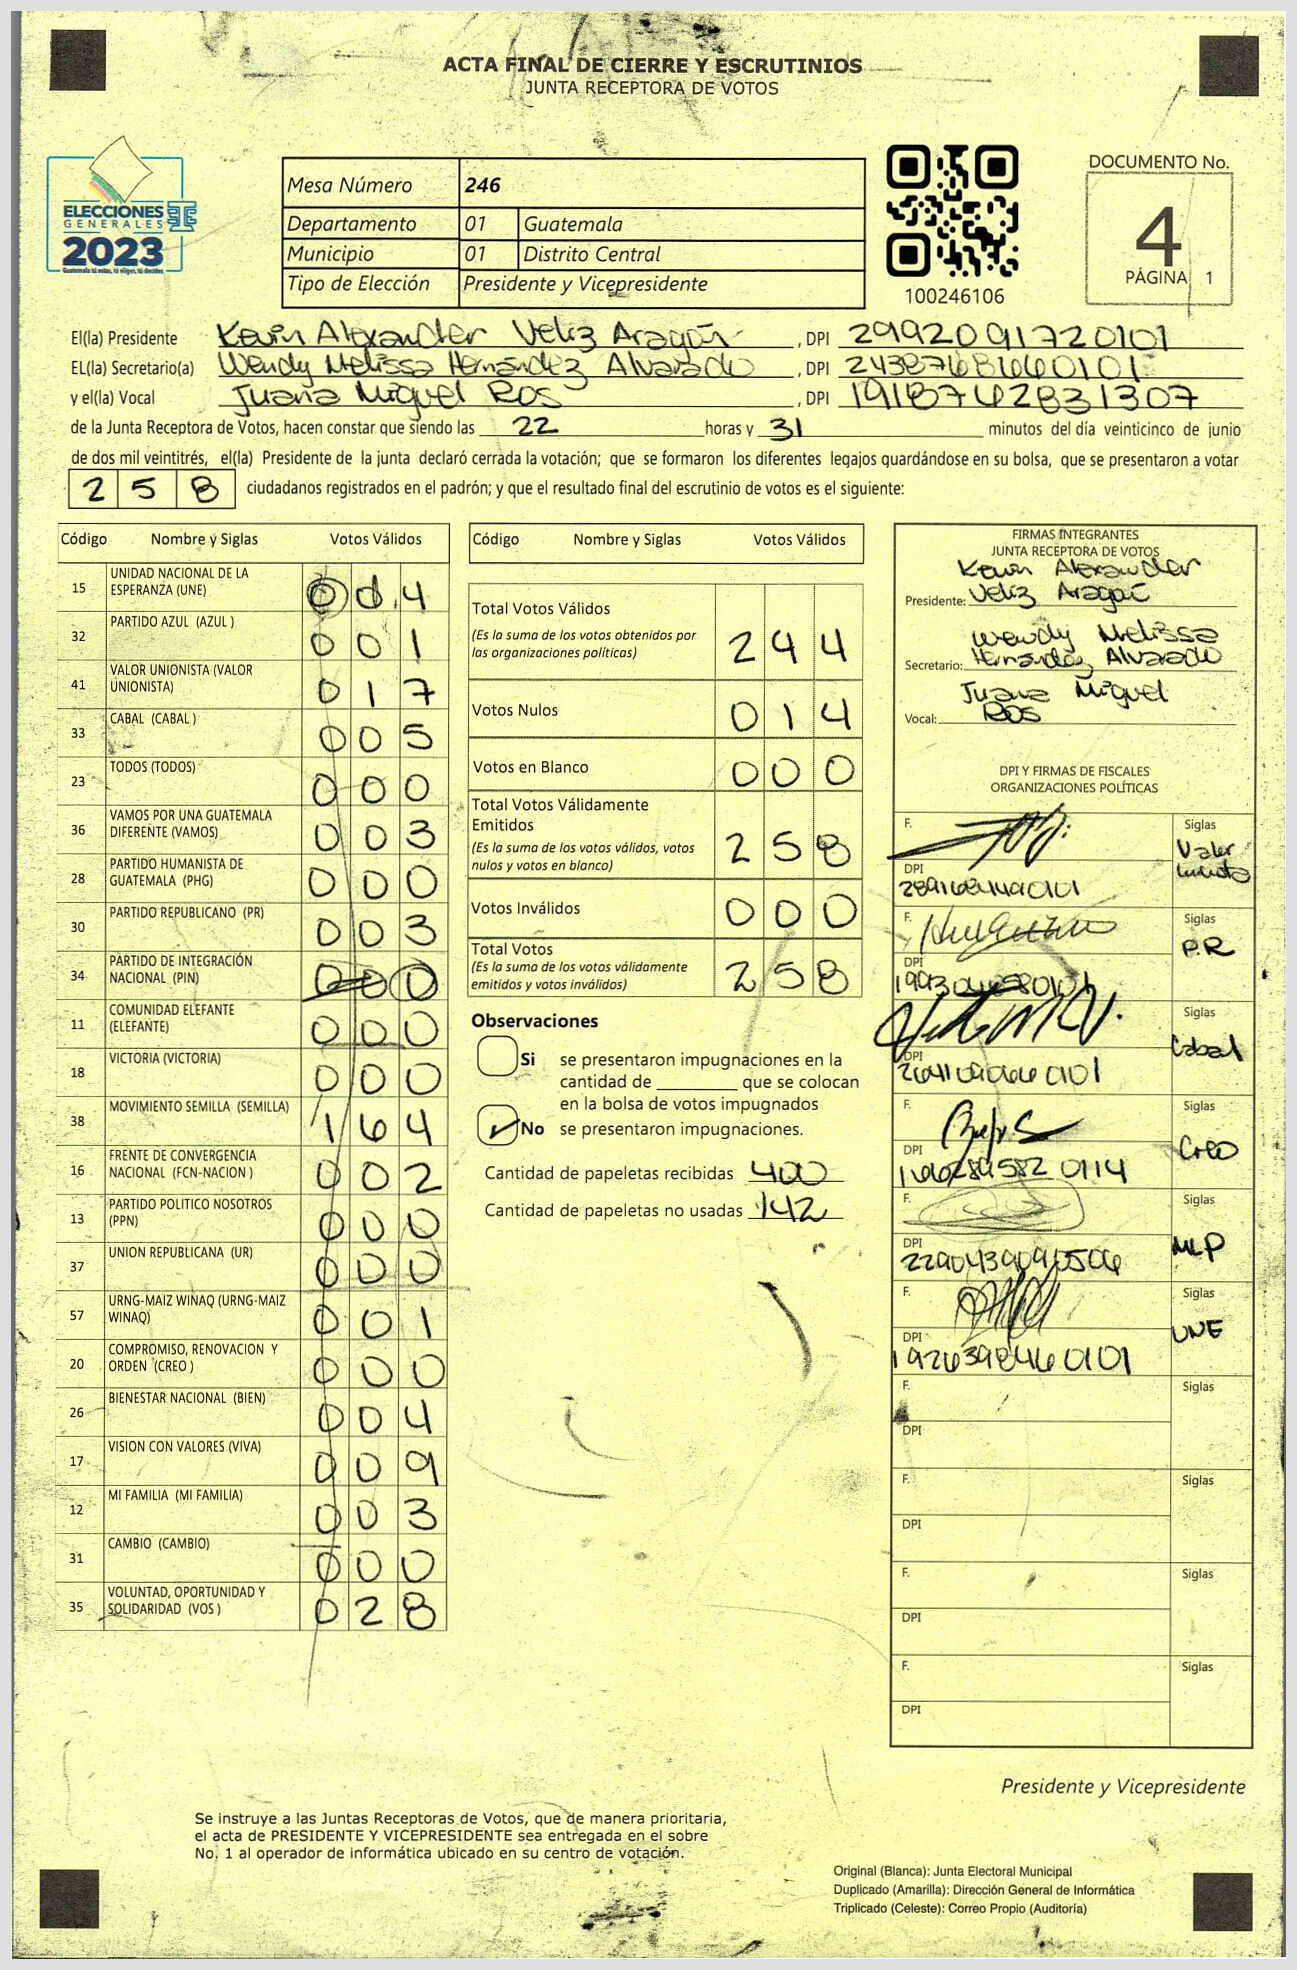 ACTA FINAL DE CIERRE Y ESCRUTINIOS
JUNTA RECEPTORA DE VOTOS
ELECCIONES
GENERALES
2023
Mesa Número 246
Departamento 01 Guatemala
Municipio 01 Distrito Central
Tipo de Elección Presidente y Vicepresidente
100246106
DOCUMENTO No.
4
PÁGINA 1
El(la) Presidente Kevin Alexander Veliz Aragón , DPI 2992091720101
EL(la) Secretario(a) Wendy Melissa Hernández Alvarado , DPI
y el(la) Vocal Juana Miguel Ros , DPI 1918762831307
de la Junta Receptora de Votos, hacen constar que siendo las 22 horas y 31 minutos del día veinticinco de junio
de dos mil veintitrés, el(la) Presidente de la junta declaró cerrada la votación; que se formaron los diferentes legajos quardándose en su bolsa, que se presentaron a votar
258 ciudadanos registrados en el padrón; y que el resultado final del escrutinio de votos es el siguiente:
Código Nombre y Siglas Votos Válidos
15 UNIDAD NACIONAL DE LA ESPERANZA (UNE) 004
32 PARTIDO AZUL (AZUL ) 001
41 VALOR UNIONISTA (VALOR UNIONISTA) 017
33 CABAL (CABAL ) 005
23 TODOS (TODOS) 000
36 VAMOS POR UNA GUATEMALA DIFERENTE (VAMOS) 003
28 PARTIDO HUMANISTA DE GUATEMALA (PHG) 000
30 PARTIDO REPUBLICANO (PR) 003
34 PARTIDO DE INTEGRACIÓN NACIONAL (PIN) 000
11 COMUNIDAD ELEFANTE (ELEFANTE) 000
18 VICTORIA (VICTORIA) 000
38 MOVIMIENTO SEMILLA (SEMILLA) 164
16 FRENTE DE CONVERGENCIA NACIONAL (FCN-NACION ) 002
13 PARTIDO POLITICO NOSOTROS (PPN) 000
37 UNION REPUBLICANA (UR) 000
57 URNG-MAIZ WINAQ (URNG-MAIZ WINAQ) 001
20 COMPROMISO, RENOVACION Y ORDEN (CREO ) 000
26 BIENESTAR NACIONAL (BIEN) 004
17 VISION CON VALORES (VIVA) 009
12 MI FAMILIA (MI FAMILIA) 003
31 CAMBIO (CAMBIO) 000
35 VOLUNTAD, OPORTUNIDAD Y SOLIDARIDAD (VOS ) 028
Código Nombre y Siglas Votos Válidos
Total Votos Válidos
(Es la suma de los votos obtenidos por
las organizaciones políticas) 244
Votos Nulos 014
Votos en Blanco 000
Total Votos Válidamente
Emitidos
(Es la suma de los votos válidos, votos
nulos y votos en blanco) 258
Votos Inválidos 000
Total Votos
(Es la suma de los votos válidamente
emitidos y votos inválidos) 258
Observaciones
Si se presentaron impugnaciones en la
cantidad de ________ que se colocan
en la bolsa de votos impugnados
No se presentaron impugnaciones.
Cantidad de papeletas recibidas 400
Cantidad de papeletas no usadas 142
FIRMAS INTEGRANTES
JUNTA RECEPTORA DE VOTOS
Kevin Alexander
Presidente: Veliz Aragón
Wendy Melissa
Secretario: Hernández Alvarado
Juana Miguel
Vocal: Ros
DPI Y FIRMAS DE FISCALES
ORGANIZACIONES POLÍTICAS
F. Siglas Valor
DPI
F. Siglas P.R
DPI
F. Siglas Cabal
DPI
F. Siglas Creo
DPI
F. Siglas MLP
DPI
F. Siglas UNE
DPI 1926398460101
F. Siglas
DPI
F. Siglas
DPI
F. Siglas
DPI
F. Siglas
DPI
Presidente y Vicepresidente
Se instruye a las Juntas Receptoras de Votos, que de manera prioritaria,
el acta de PRESIDENTE Y VICEPRESIDENTE sea entregada en el sobre
No. 1 al operador de informática ubicado en su centro de votación.
Original (Blanca): Junta Electoral Municipal
Duplicado (Amarilla): Dirección General de Informática
Triplicado (Celeste): Correo Propio (Auditoría)